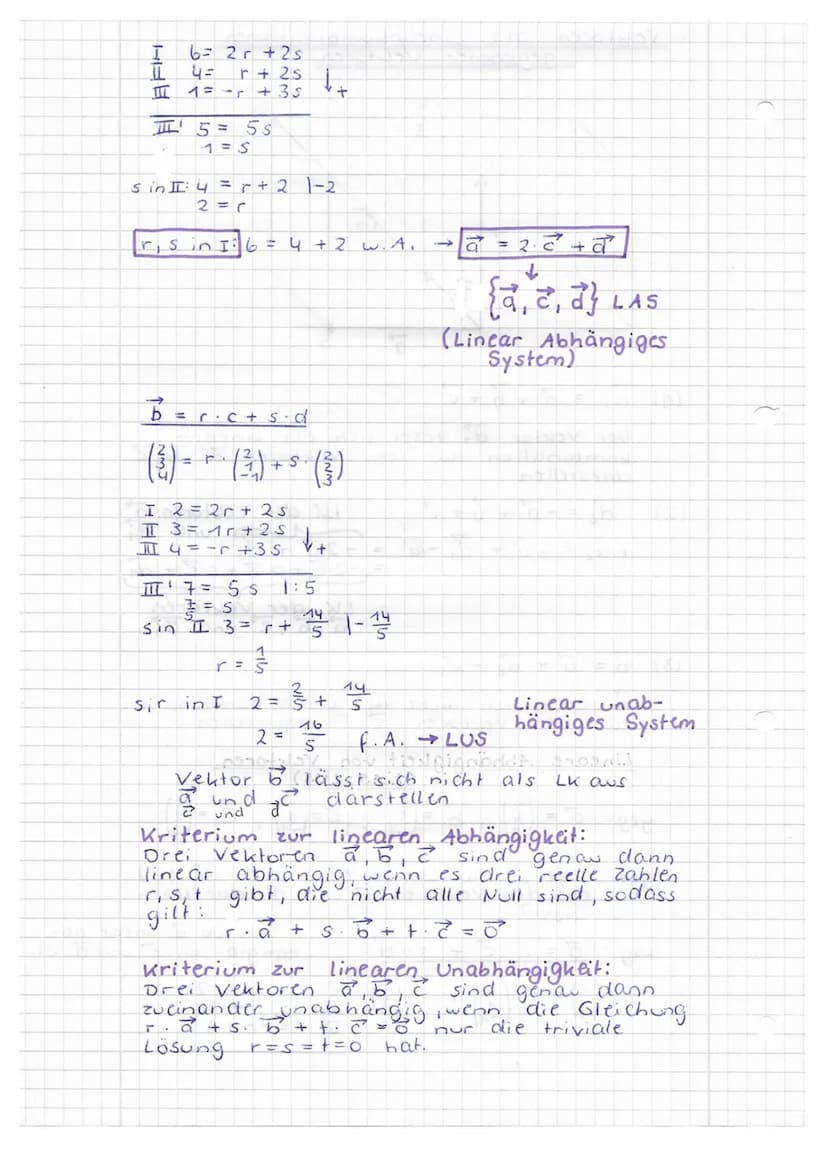 I 6 = 2r + 2s
II 4 = r + 2s
III 1 = -r + 3s ↓+
III' 5 = 5s
1 = s
s in II: 4 = r + 2 |-2
2 = r
r, s in I: 6 = 4 + 2 w.A. → a⃗ = 2·c⃗ + d⃗
↓
{a⃗, c⃗, d⃗} LAS
(Linear Abhängiges
System)
b⃗ = r·c + s·d
(2 3 4) = r·(2 1 -1) + s·(2 2 3)
I 2 = 2r + 2s
II 3 = 1r + 2s
III 4 = -r + 3s ↓+
III' 7 = 5s |:5
7/5 = s
s in II 3 = r + 14/5 |-14/5
r = 1/5
s,r in I 2 = 2/5 + 14/5
2 = 16/5 f.A. → LUS
Linear unab-
hängiges System
Vektor b⃗ lässt sich nicht als LK aus
a⃗ und c⃗ darstellen
c⃗ und d⃗
Kriterium zur linearen Abhängigkeit:
Drei Vektoren a⃗, b⃗, c⃗ sind genau dann
linear abhängig, wenn es drei reelle Zahlen
r, s, t gibt, die nicht alle Null sind, sodass
gilt:
r·a⃗ + s·b⃗ + t·c⃗ = o⃗
Kriterium zur linearen Unabhängigkeit:
Drei Vektoren a⃗, b⃗, c⃗ sind genau dann
zueinander unabhängig, wenn die Gleichung
r·a⃗ + s·b⃗ + t·c⃗ = o⃗ nur die triviale
Lösung r=s=t=0 hat.